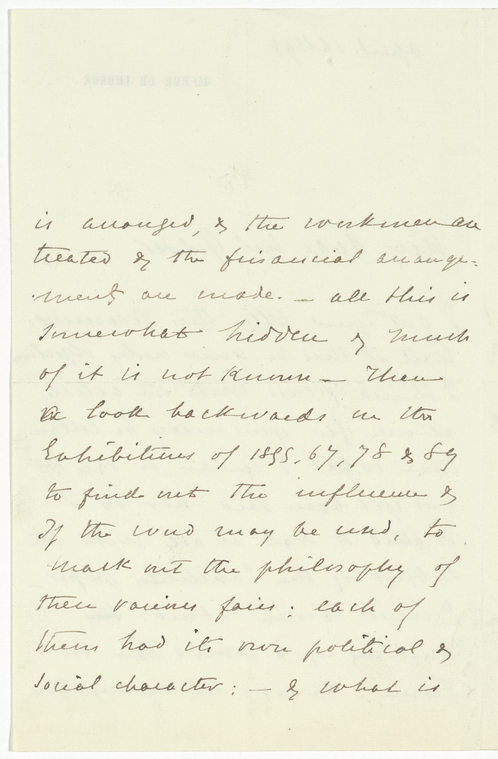 is arranged, & the workmen are
treated & the financial arrange-
ments are made. — all this is
somewhat hidden & much
of it is not known — Then
to look backwards on the
Exhibitions of 1855, 67, 78 & 89
to find out the influence &
if the word may be used, to
mark out the philosophy of
these various fairs: each of
them had its own political &
social character: — & what is